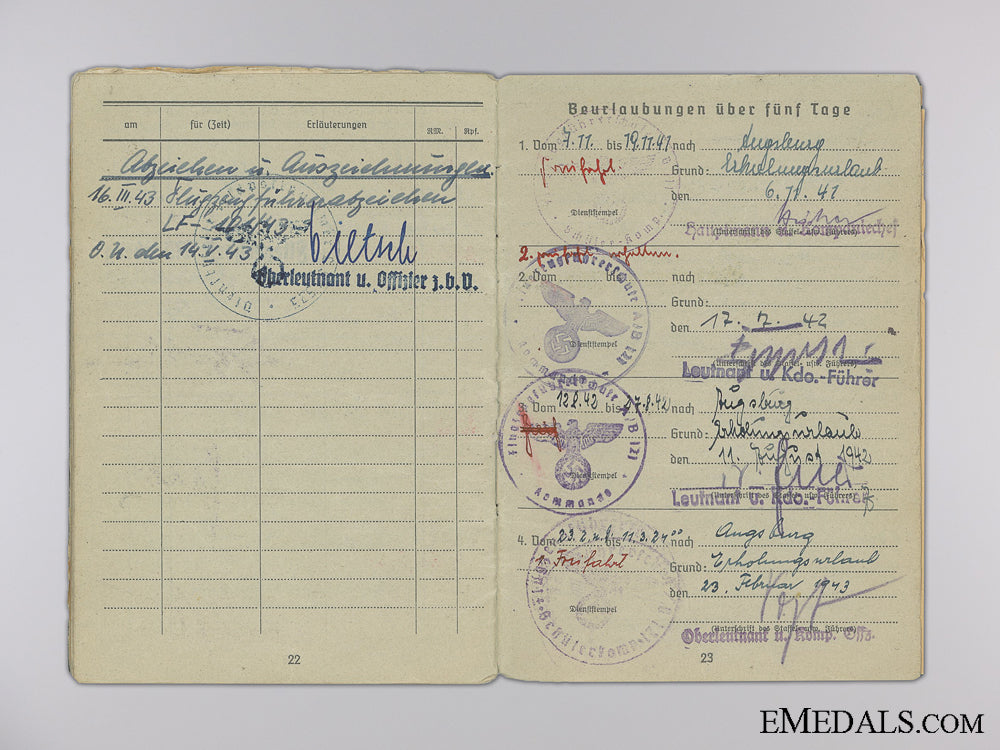 am für (Zeit) Erläuterungen RM. Rpf.
Abzeichen u. Auszeichnungen.
16.III.43 Flugzeugführerabzeichen
O.U. den 14.V.43
Oberleutnant u. Offizier z.b.V.
22
Beurlaubungen über fünf Tage
1. Vom 4.11. bis 19.11.41 nach Augsburg
Freifahrt. Grund: Erholungsurlaub
den 6.11.41
Dienststempel
2. erhalten.
2. Vom bis nach
Grund:
den 17.7.42
Dienststempel
Leutnant u. Kdo.-Führer
3. Vom 12.8.42 bis 27.8.42 nach Augsburg
Grund: Erholungsurlaub
den 11. August 1942
Dienststempel
Leutnant u. Kdo.-Führer
Flugzeugführerschule A/B 121
Kommando
4. Vom 23.2. bis 11.3. 24°° nach Augsburg
1 Freifahrt Grund: Erholungsurlaub
den 23. Februar 1943
Dienststempel
(Unterschrift des Staffel- usw. Führers)
Oberleutnant u. Komp. Offz.
23
EMEDALS.COM